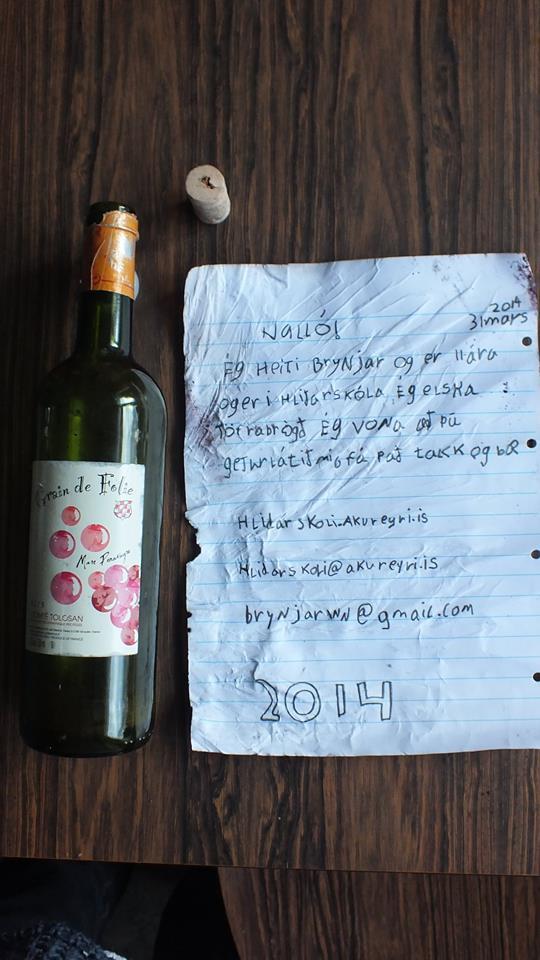 Grain de Folie
COMTÉ TOLOSAN
2014
31mars
Halló!
Ég Heiti Brynjar og er 11ára
og er i Hlidarskóla Ég elska
töfrabrögð Ég vona að þú
getur látið mig fá það takk og bæ
Hlidarskoli.akureyri.is
Hlidarskoli@akureyri.is
brynjarwn@gmail.com
2014